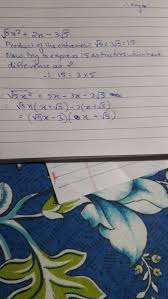 √5x² + 2x - 3√5
Product of the extremes = √5 × 3√5 = 15
Now try to express 15 as factors which have
difference as 2
∴ 15 = 3 × 5
∴ √5x² + 5x - 3x - 3√5
= √5x(x + √5) - 3(x + √5)
= (√5x - 3)(x + √5)